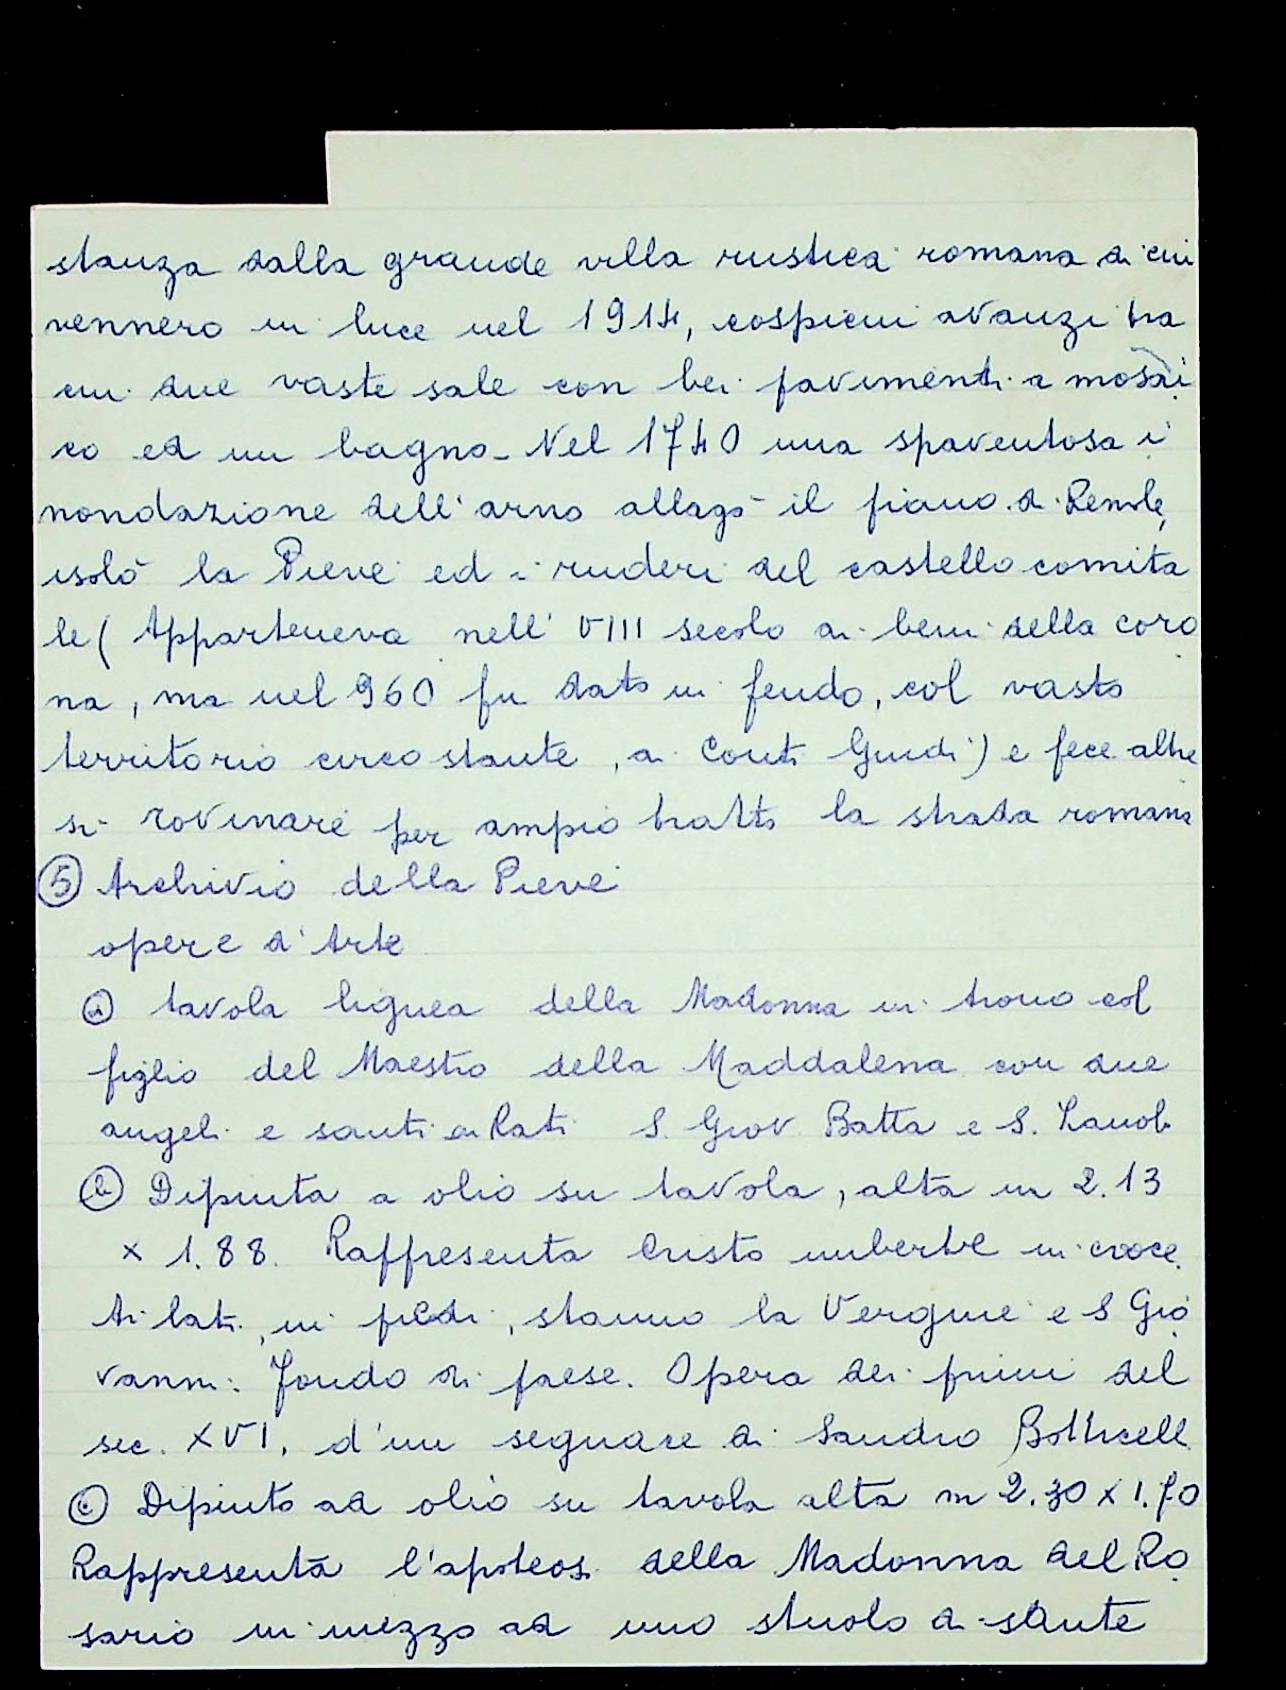 stanza dalla grande villa rustica romana di cui
vennero in luce nel 1914, cospicui avanzi tra
cui due vaste sale con bei pavimenti a mosai
co ed un bagno - Nel 1740 una spaventosa i
nondazione dell'arno allagò il piano di Remole,
isolò la Pieve ed i ruderi del castello comita
le ( Apparteneva nell' VIII secolo ai beni della coro
na, ma nel 960 fu dato in feudo, col vasto
territorio circostante, ai Conti Guidi) e fece altre
sì rovinare per ampio tratto la strada romana
5 Archivio della Pieve
opere d'Arte
a tavola lignea della Madonna in trono col
figlio del Maestro della Maddalena con due
angeli e santi ai lati S. Giov. Batta e S. Zanobi
b Dipinta a olio su tavola, alta m 2.13
x 1.88. Rappresenta Cristo imberbe in croce.
Ai lati, in piedi, stanno la Vergine e S Gio
vanni. Fondo di paese. Opera dei primi del
sec. XVI, d'un seguace di Sandro Botticell
c Dipinto ad olio su tavola alta m 2.30 x 1.70
Rappresenta l'apoteosi della Madonna del Ro
sario in mezzo ad uno stuolo di sante